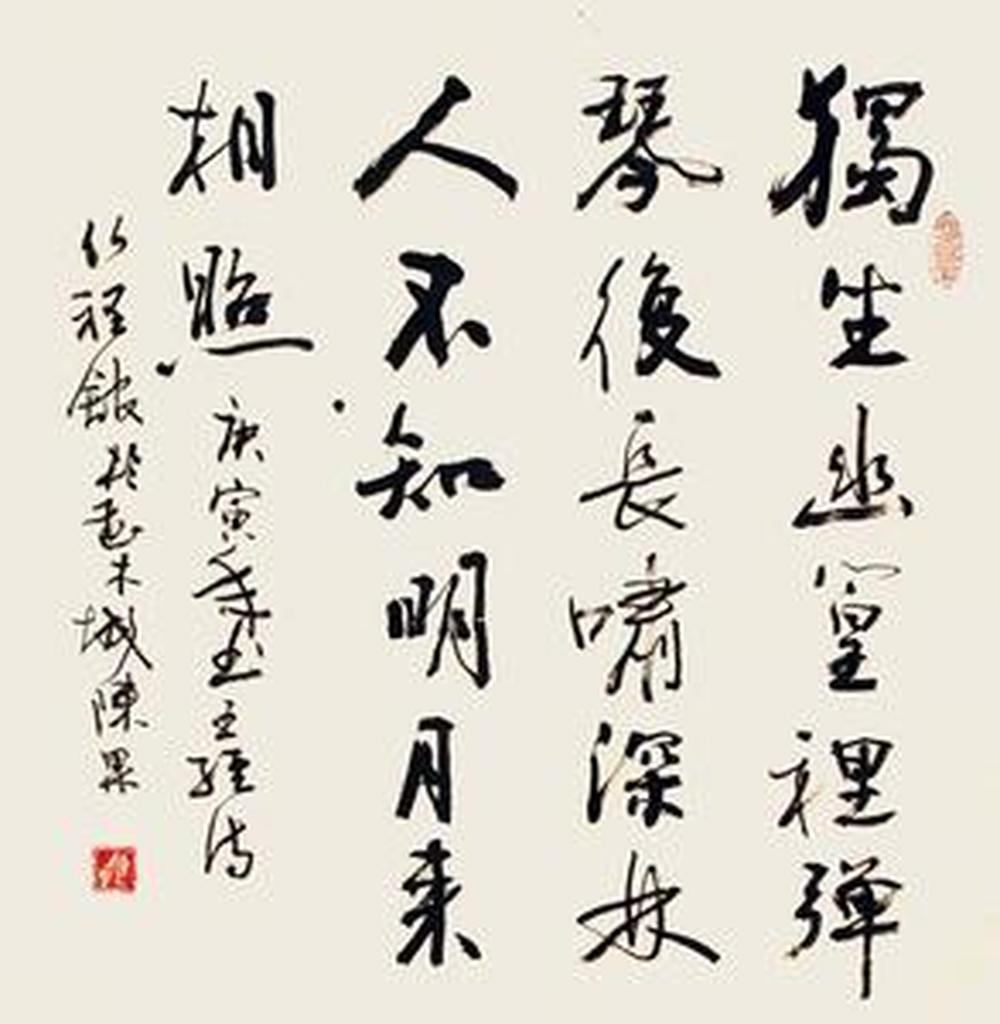 獨坐幽篁裡彈
琴復長嘯深林
人不知明月来
相照 庚寅年書王維詩
於 木城陳果